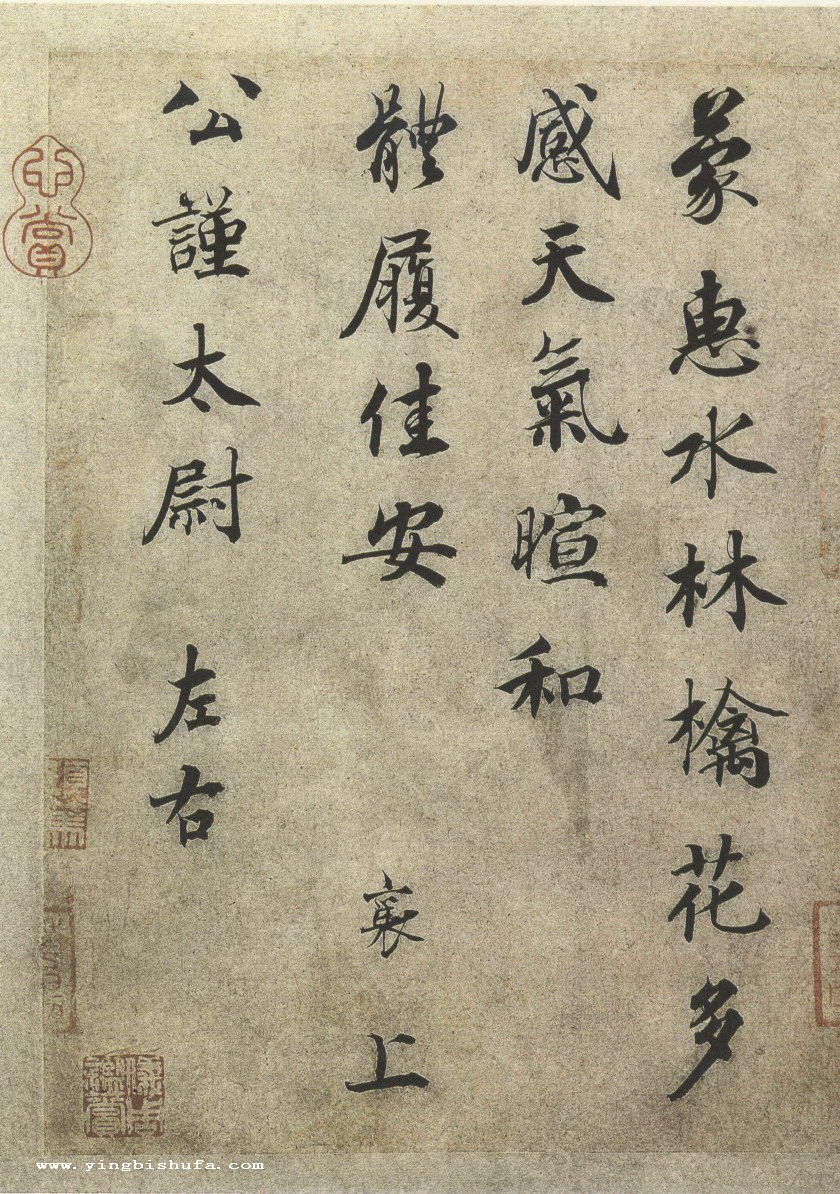 蒙惠水林檎花多
感天氣暄和
體履佳安 襄上
公謹太尉 左右
心賞
www.yingbishufa.com